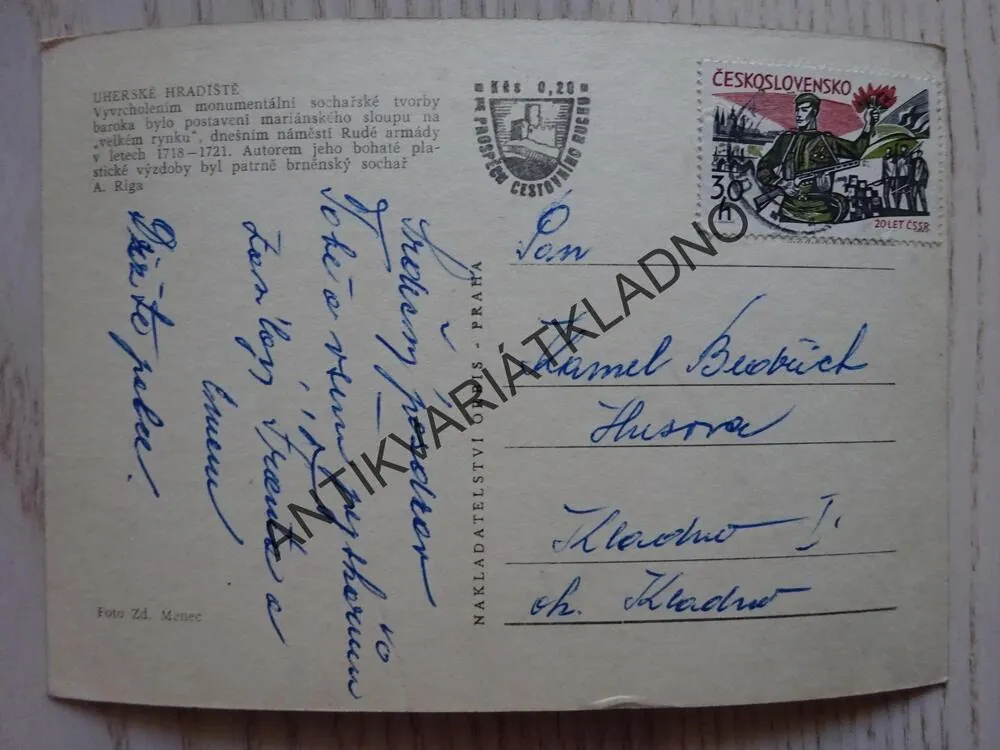 UHERSKÉ HRADIŠTĚ
Vyvrcholením monumentální sochařské tvorby
baroka bylo postavení mariánského sloupu na
„velkém rynku", dnešním náměstí Rudé armády
v letech 1718–1721. Autorem jeho bohaté pla-
stické výzdoby byl patrně brněnský sochař
A. Riga
Kčs 0,20
V PROSPĚCH CESTOVNÍHO RUCHU
ČESKOSLOVENSKO
30 h
20 LET ČSSR
Srdečný pozdrav
Tobě a všem
a
Držte
Foto Zd. Menec
NAKLADATELSTVÍ ORBIS - PRAHA
Pan
Bedřich
Husova
Kladno I.
Kladno
ANTIKVARIÁTKLADNO